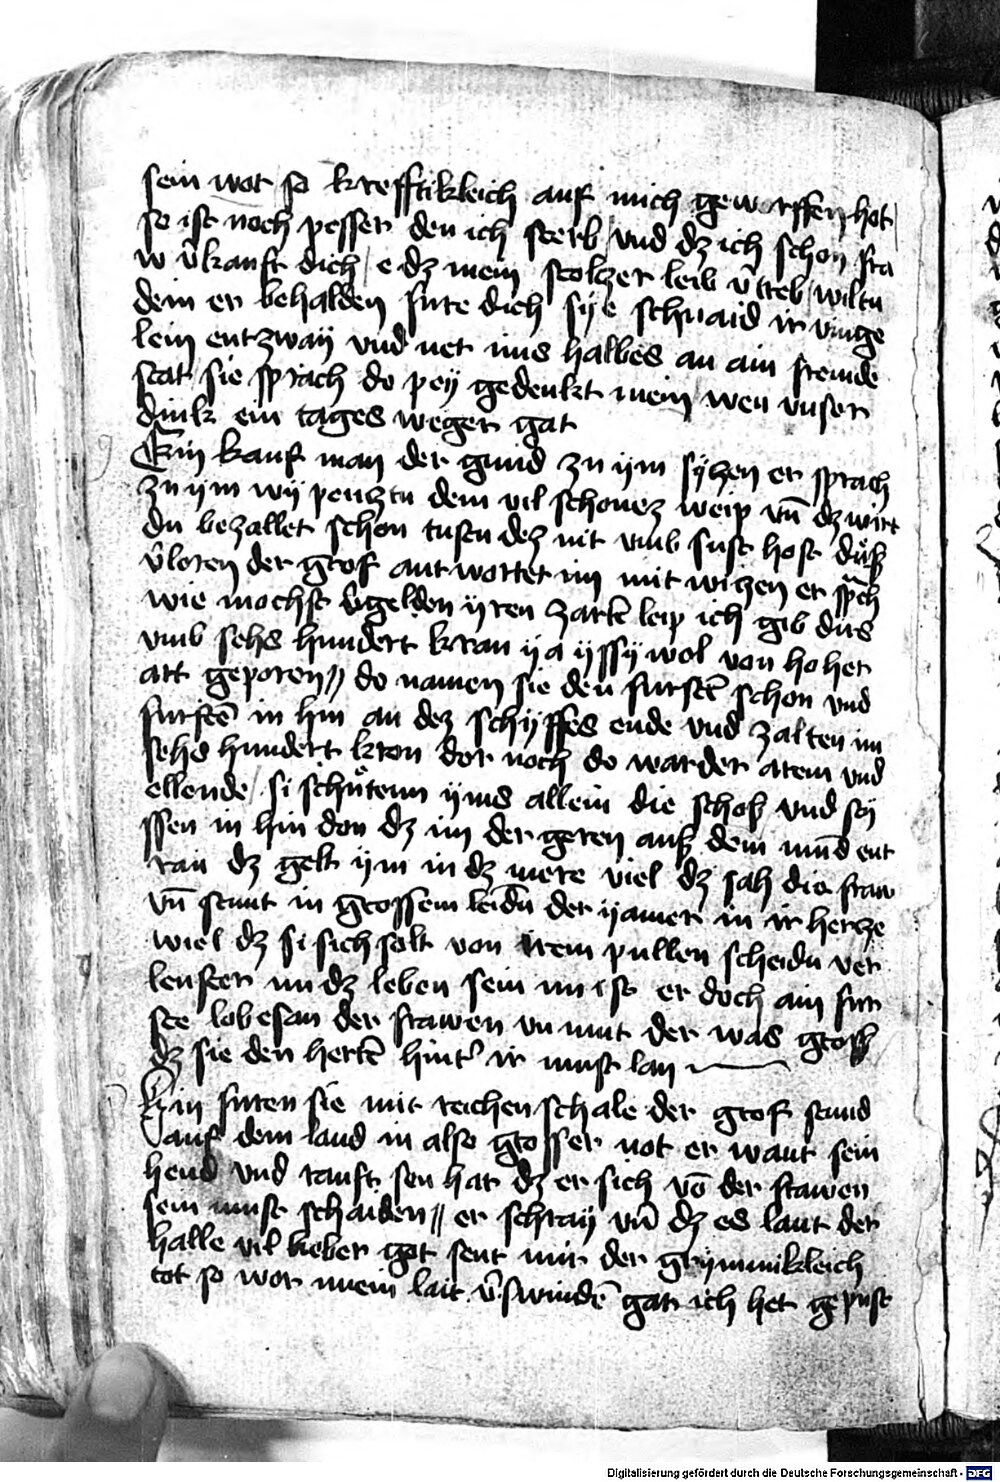 sein wot so krefftikleich auf mich geworffen hot
so ist noch pesser den ich sterb / vnd dz ich schon fra
w v̄kauft dich / e dz mein stolzer leib v̄treb / wiltu
dein er behalden fure dich sye schnaid ir vinge
lein entzway vnd net ims halbes an ain fremde
stat / sie sprach do pey gedenkt mein wen vnser
dink ein tages weger gat
Ein kauf man der gund zu ym syzen er sprach
zu ym wy peuhztu dem vil schonez weip vn̄ dz wirt
du bezallet schon tustu dez nit vmb sust host duß
v̄loren der grof antwortet im mit wizen er sp̄ch
wie mochst v̄gelden yren zartē leip ich gib dirs
vmb sehs hundert kran ya yssy wol von hoher
art geporen // do namen sie den furstē schon vnd
furstē in hin an dez schyffes ende vnd zalten im
sehs hundert kron dor noch do warder arem vnd
ellende / si schutenn yms allein die schoß vnd sy
ssen in hin don dz im der geren auß dem mūd ent
ran dz gelt ym in dz mere viel dz sah die fraw
vn̄ stunt in grossem leidn̄ der yamer in ir hercze
wiel dz si sich solt von irem pullen scheidn ver
leuster im dz leben sein im ist er doch ain fur
ste lobesan der frawen vnmut der was groß
dz sie den hertē hint' ir must lan
Hin furen sie mit reichen schale der grof stund
auf dem land in also grosser not er want sein
hend vnd rauft sen har dz er sich vō der frawen
sein must schaiden // er schray vn̄ dz es laut der
halle vil lieber got sent mir der grymmikleich
tot so wor mein lait v̄swindē gar ich het gepust
Digitalisierung gefördert durch die Deutsche Forschungsgemeinschaft - DFG